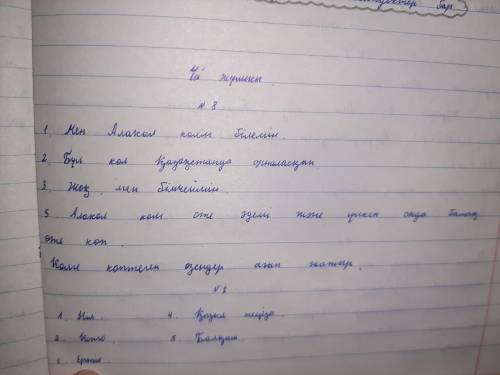 бар.
Үй жұмысы
№ 3
1. Мен Алакол колін білемін.
2. Бұл кол Қазақстанда орналасқан
3. Жоқ, мен білмеймін.
5. Алакол колі оте әдемі және үлкен онда балық
оте коп.
Колге коптеген озендер ағып жатыр.
№ 2
1. Ніл. 4. Қызыл теңіз.
2. Комо. 5. Балқаш.
3. Ертіс.